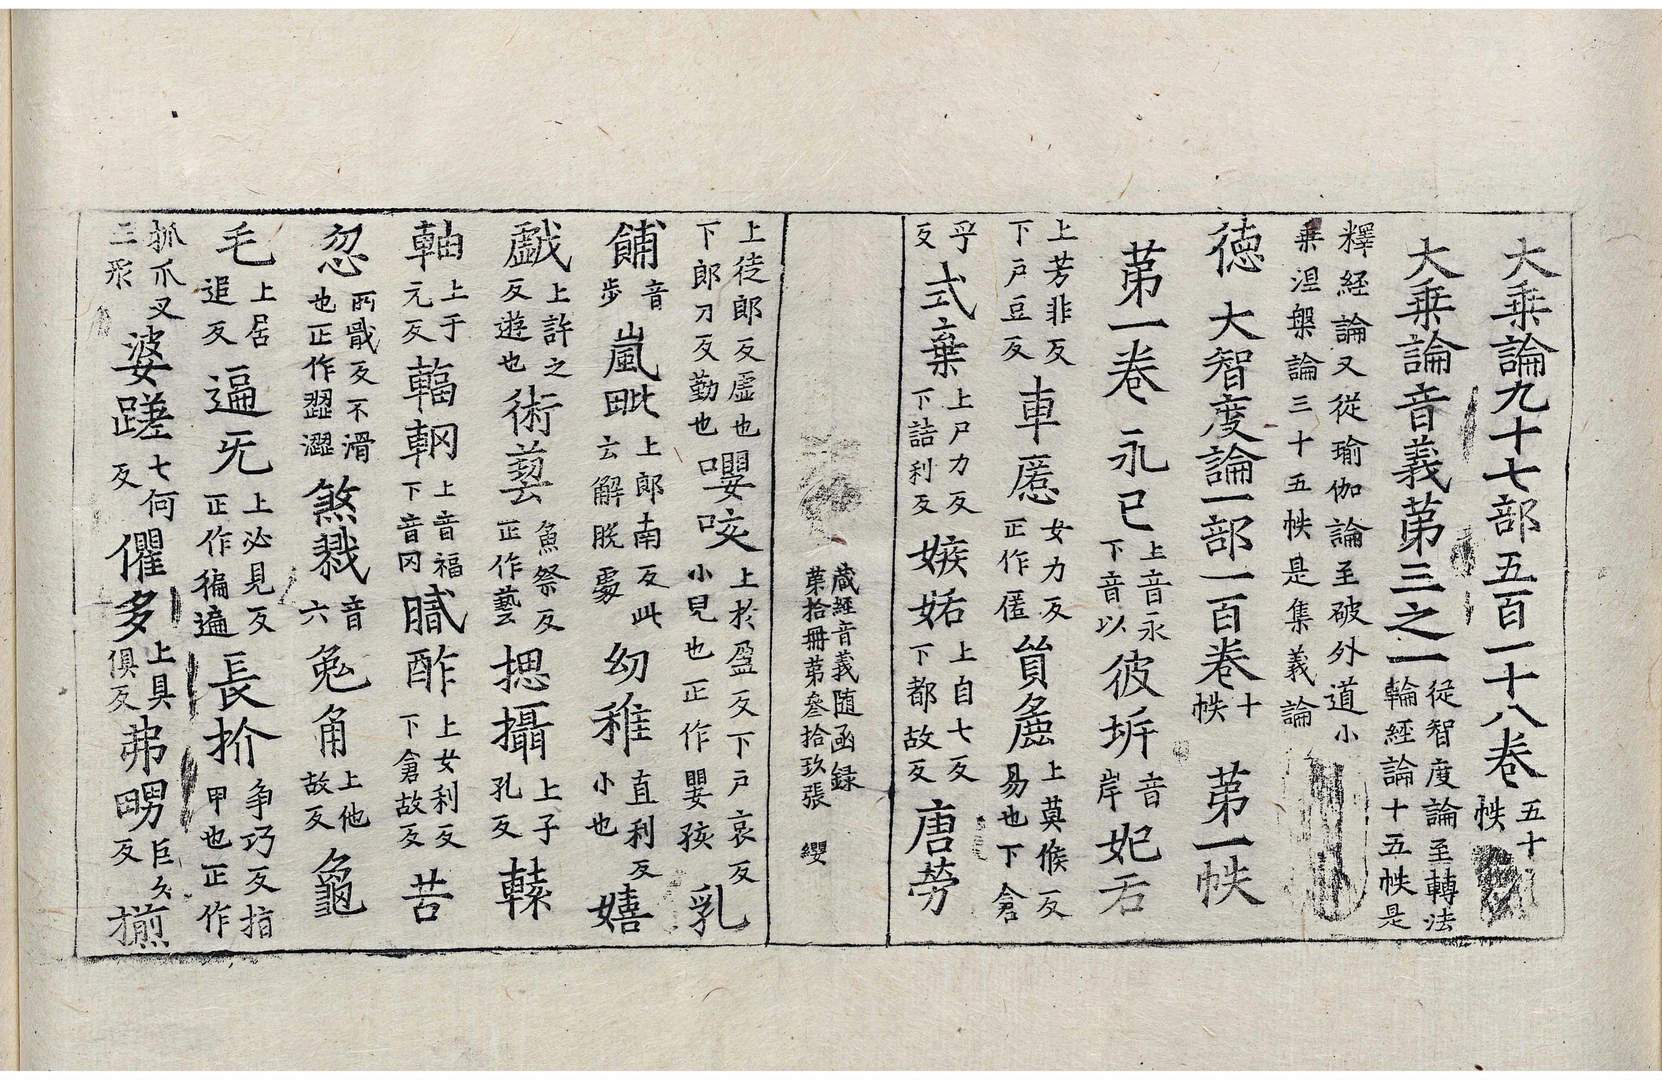 大乗論九十七部五百一十八卷五十帙
大乗論音義第三之一從智度論至轉法輪經論十五帙是
釋經論又從瑜伽論至破外道小乗涅槃論三十五帙是集義論
徳 大智度論一部一百卷十帙 第一帙
第一卷 永已上音永下音以 彼㘁音岸 妃后
上芳非反下戶豆反 車匿女力反正作匿 貿麁上莫候反易也下倉
乎反 式棄上尸力反下詰利反 嫉妬上自七反下都故反 唐勞
藏經音義随函録
第拾冊第叄拾玖張 纓
上徒郎反虛也下郎刀反勤也 嚶咬上於盈反下戶哀反小兒也正作嬰孩 乳
餔音步 嵐毗上郎南反此云解脫處 㓜稚直利反小也 嬉
戱上許之反遊也 術藝魚祭反正作藝 揌攝上子孔反 轅
軸上于元反 輻輞上音福下音冈 膩酢上女利反下倉故反 苦
忍 所戢反不滑也正作澀澀 煞戮音六 兔角上他故反 龜
毛上居追反 逼旡上必見反正作徧遍 長抓争巧反指甲也正作
抓爪叉三形 婆蹉七何反 儸多上具俱反 弗㽒巨久反 揃